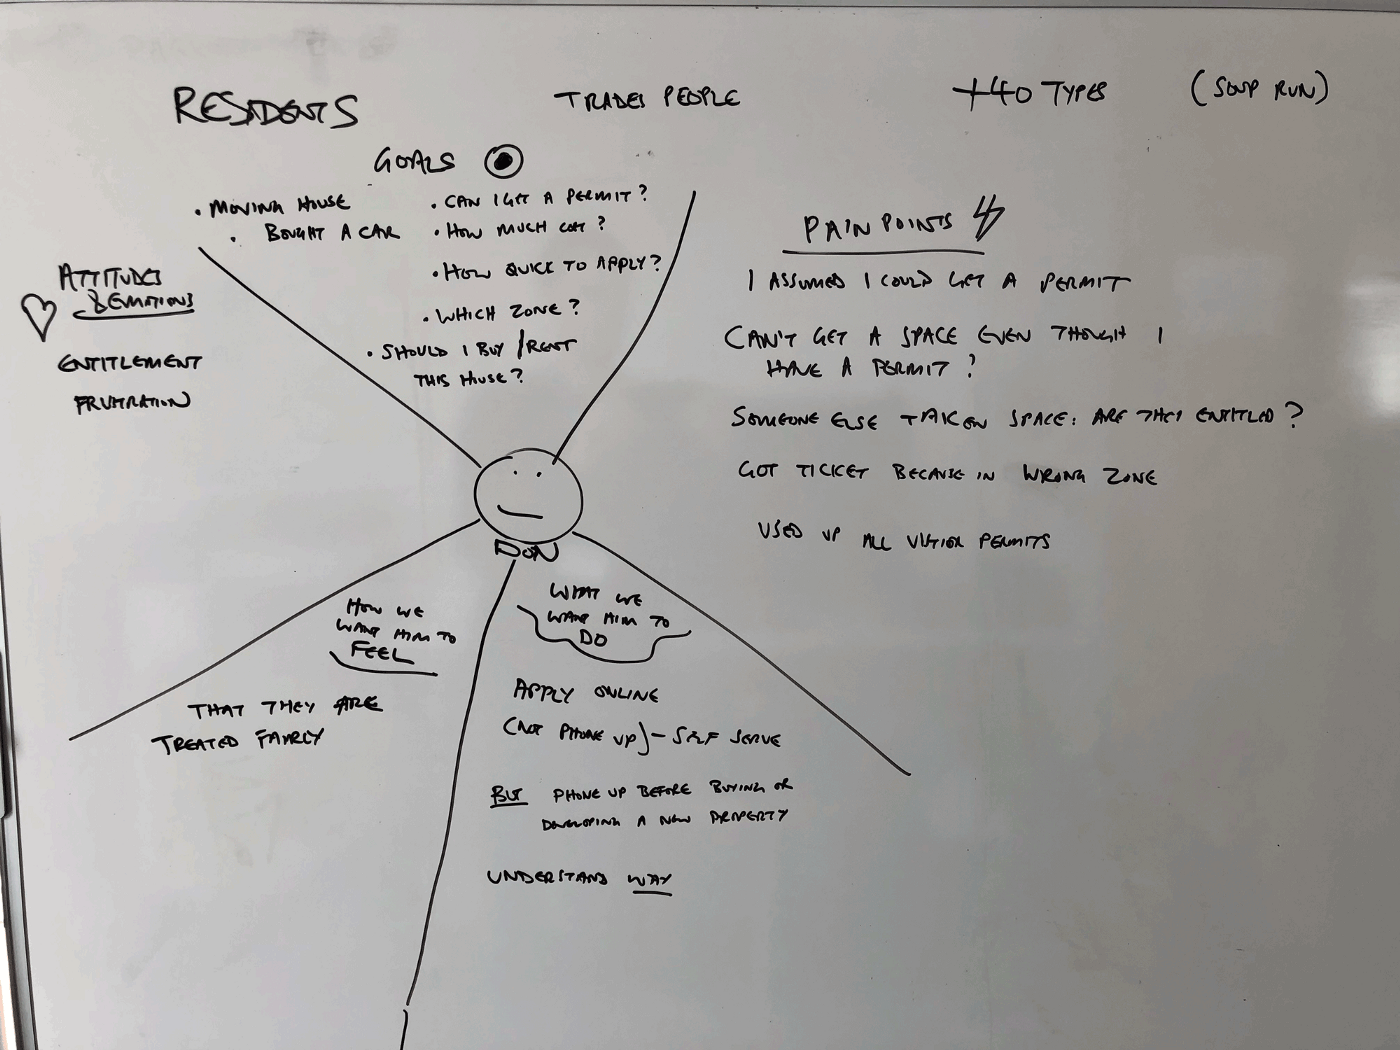 RESIDENTS
TRADES PEOPLE
+40 TYPES
(SOUP RUN)
GOALS
• MOVING HOUSE
• BOUGHT A CAR
• CAN I GET A PERMIT?
• HOW MUCH COST?
• HOW QUICK TO APPLY?
• WHICH ZONE?
• SHOULD I BUY / RENT
THIS HOUSE?
ATTITUDES
& EMOTIONS
ENTITLEMENT
FRUSTRATION
PAIN POINTS
I ASSUMED I COULD GET A PERMIT
CAN'T GET A SPACE EVEN THOUGHT I
HAVE A PERMIT?
SOMEONE ELSE TAKEN SPACE: ARE THEY ENTITLED?
GOT TICKET BECAUSE IN WRONG ZONE
USED UP ALL VISITOR PERMITS
DON
HOW WE
WANT HIM TO
FEEL
THAT THEY ARE
TREATED FAIRLY
WHAT WE
WANT HIM TO
DO
APPLY ONLINE
(NOT PHONE UP) – SELF SERVE
BUT PHONE UP BEFORE BUYING OR
DEVELOPING A NEW PROPERTY
UNDERSTAND WHY